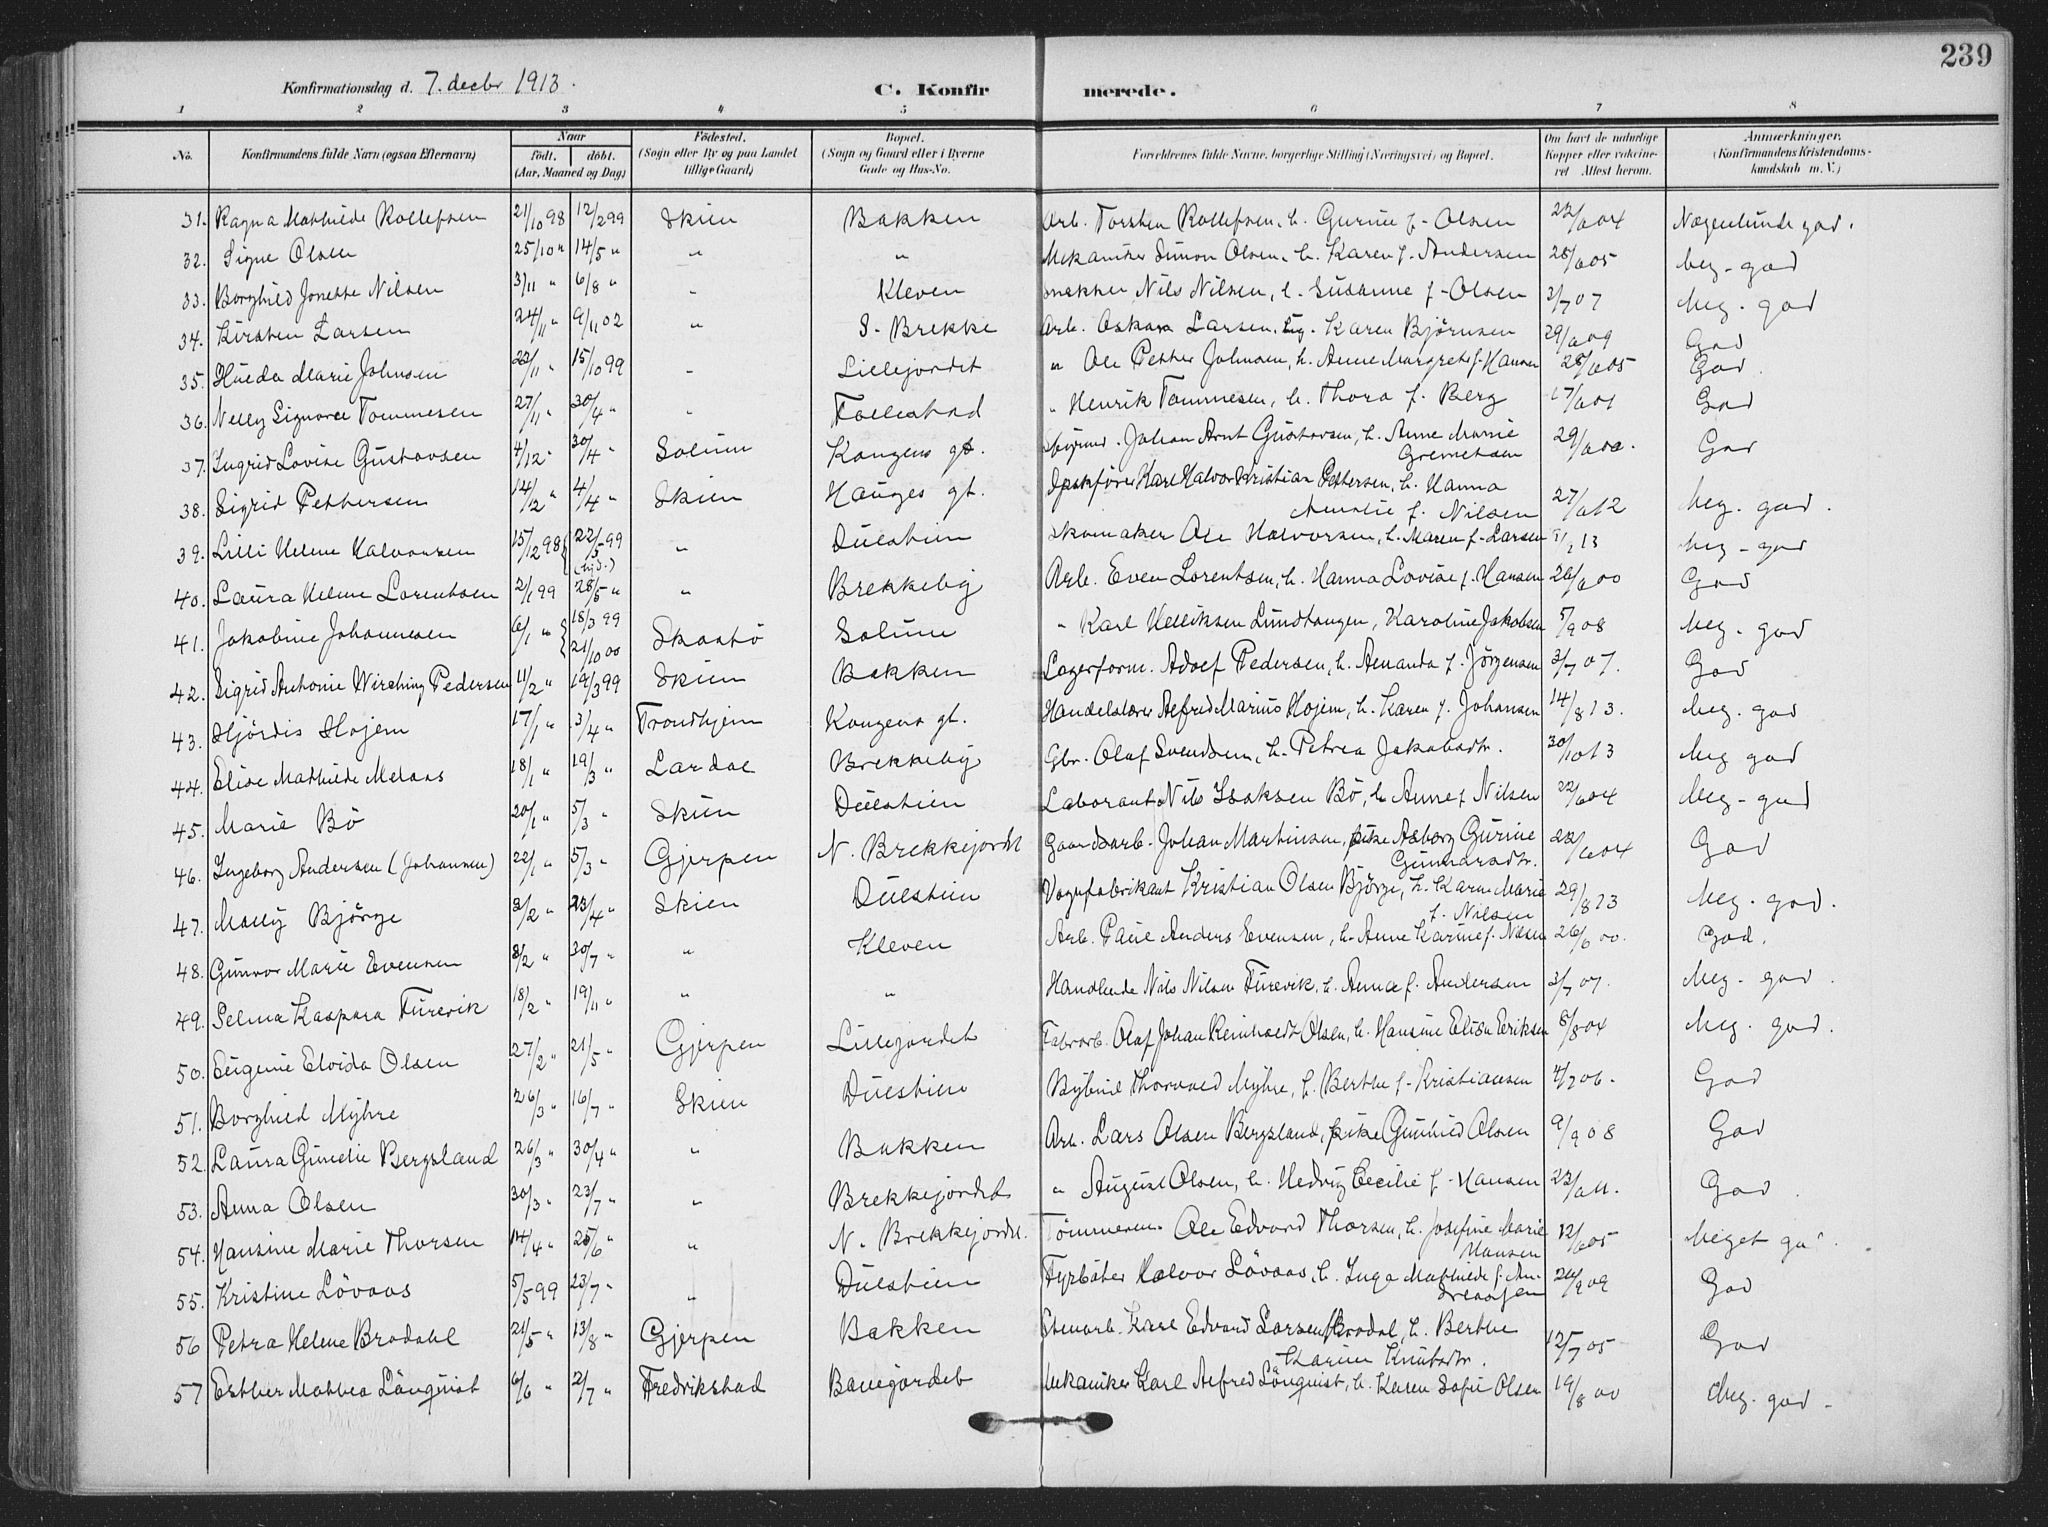 239
Konfirmationsdag d. 7. decbr 1913. C. Konfirmerede.
1 2 3 4 5 6 7 8
No. Konfirmandens fulde Navn (ogsaa Efternavn) Naar födt. döbt. (Aar, Maaned og Dag) Födested. (Sogn eller By og paa Landet tillige Gaard) Bopæl. (Sogn og Gaard eller i Byerne Gade og Hus-No. Forældrenes fulde Navne, borgerlige Stilling (Næringsvei) og Bopæl. Om havt de naturlige Kopper eller vakcineret Attest herom. Anmærkninger. (Konfirmandens Kristendomskundskab m. V.)
31. Ragna Mathilde Rollefsen 21/10 98 12/2 99 Skien Bakken Arb. Torsten Rollefsen, h. Gurine f. Olsen 22/6 04 Nogenlunde god.
32. Signe Olsen 25/10 " 14/5 " " " Mekaniker Simon Olsen, h. Karen f. Andersen 28/6 05 Meg. god
33. Borghild Jonette Nilsen 3/11 " 6/8 " " Kleven Snekker Nils Nilsen, h. Susanne f. Olsen 3/7 07 Meg. god
34. Kirsten Larsen 24/11 " 9/11 02 " S. Brekke Arb. Oskar Larsen, Karen Björnsen 29/6 09 God
35. Hulda Marie Johnsen 22/11 " 15/10 99 " Lillejordet " Ole Petter Johnsen, h. Anne Margrete f. Hansen 28/6 05 God.
36. Nelly Signora Tommesen 27/11 " 30/4 " " Follestad " Henrik Tommesen, h. Thora f. Berg 17/6 01 God
37. Ingrid Lovise Gustavsen 4/12 " 30/4 " Solum Kongens gt. Johan Arnt Gustavsen, h. Anne Marie 29/6 00. God
38. Sigrid Pettersen 14/12 " 4/4 " Skien Hauges gt. Karl Halvor Kristian Pettersen, h. Hanna Amalie f. Nilsen 27/6 12 Meg. god.
39. Lilli Helene Halvorsen 15/12 98 22/5 99 (hjd.) " Duestien Skomaker Ole Halvorsen, h. Maren f. Larsen 13 Meg. god
40. Laura Helene Lorentsen 2/1 99 28/5 " " Brekkeby Arb. Even Lorentsen, h. Hanna Lovise f. Hansen 26/6 00 God
41. Jakobine Johannesen 6/1 " 18/3 99 21/10 00 Skaatö Solum " Karl Helliksen Lundtangen, Karoline Jakobsen 5/9 08 Meg. god
42. Sigrid Antonie Wirching Pedersen 11/2 " 19/3 99 Skien Bakken Lagerform. Adolf Pedersen, h. Amanda f. Jörgensen 3/7 07. God
43. Hjördis Hojem 17/1 " 3/4 " Trondhjem Kongens gt. Handelslærer Alfred Marius Hojem, h. Karen f. Johansen 14/8 13. Meg. god
44. Elise Mathilde Melaas 18/1 " 19/3 " Lardal Brekkeby Gbr. Olaf Svendsen, h. Petrea Jakobsdtr. 30/10 13 Meg god
45. Marie Bö 20/1 " 5/3 " Skien Duestien Laborant Nils Isaksen Bö, h. Anne f. Nilsen 22/6 04 Meg. god
46. Ingeborg Andersen (Johansen) 22/1 " 5/3 " Gjerpen N. Brekkejordet Gaardsarb. Johan Martinsen, pike Asborg Gurine Gunnarsdtr. 22/6 04 God
47. Molly Björge 3/2 " 23/4 " Skien Duestien Vognfabrikant Kristian Olsen Björge, h. Karen Marie f. Nilsen 29/8 13 Meg. god.
48. Gunvor Marie Evensen 8/2 " 30/7 " " Kleven Arb. Paul Anders Evensen, h. Anne Karine f. Nilsen 26/6 00. God.
49. Selma Kaspara Furevik 18/2 " 19/11 " " " Handlende Nils Nilsen Furevik, h. Anna f. Andersen 3/7 07. Meg. god.
50. Eugenie Elvida Olsen 27/2 " 21/5 " Gjerpen Lillejordet Fabrarb. Olaf Johan Reinholdt Olsen, h. Hansine Elise Eriksen 8/8 04 Meg. god.
51. Borghild Myhre 26/3 " 16/7 " Skien Duestien Bybud Thorvald Myhre, h. Berthe f. Kristiansen 4/7 06. God
52. Laura Gunelie Bergsland 26/3 " 30/4 " " Bakken Arb. Lars Olsen Bergsland, pike Gunhild Olsen 9/9 08 God
53. Anna Olsen 30/3 " 23/7 " " Brekkejordet " August Olsen, h. Hedvig Cecilie f. Hansen 23/6 11. God.
54. Hansine Marie Thorsen 14/4 " 25/6 " " N. Brekkejordet. Tömmerm. Ole Edvard Thorsen, h. Josefine Marie Hansen 12/6 05 Meget god.
55. Kristine Lövaas 5/5 99 23/7 " " Duestien Fyrböter Halvor Lövaas, h. Inga Mathilde f. Andreasen 24/9 09 God
56 Petra Helene Brodahl 21/5 " 13/8 " Gjerpen Bakken Stenarb. Karl Edvard Larsen Brodal, h. Berthe Karine Knutsdtr. 12/7 05 God
57 Esther Mattea Lönquist 6/6 " 2/7 " Fredrikstad Bauejordet Mekaniker Karl Alfred Lönquist, h. Karen Sofie Olsen 19/8 00 Meg. god.